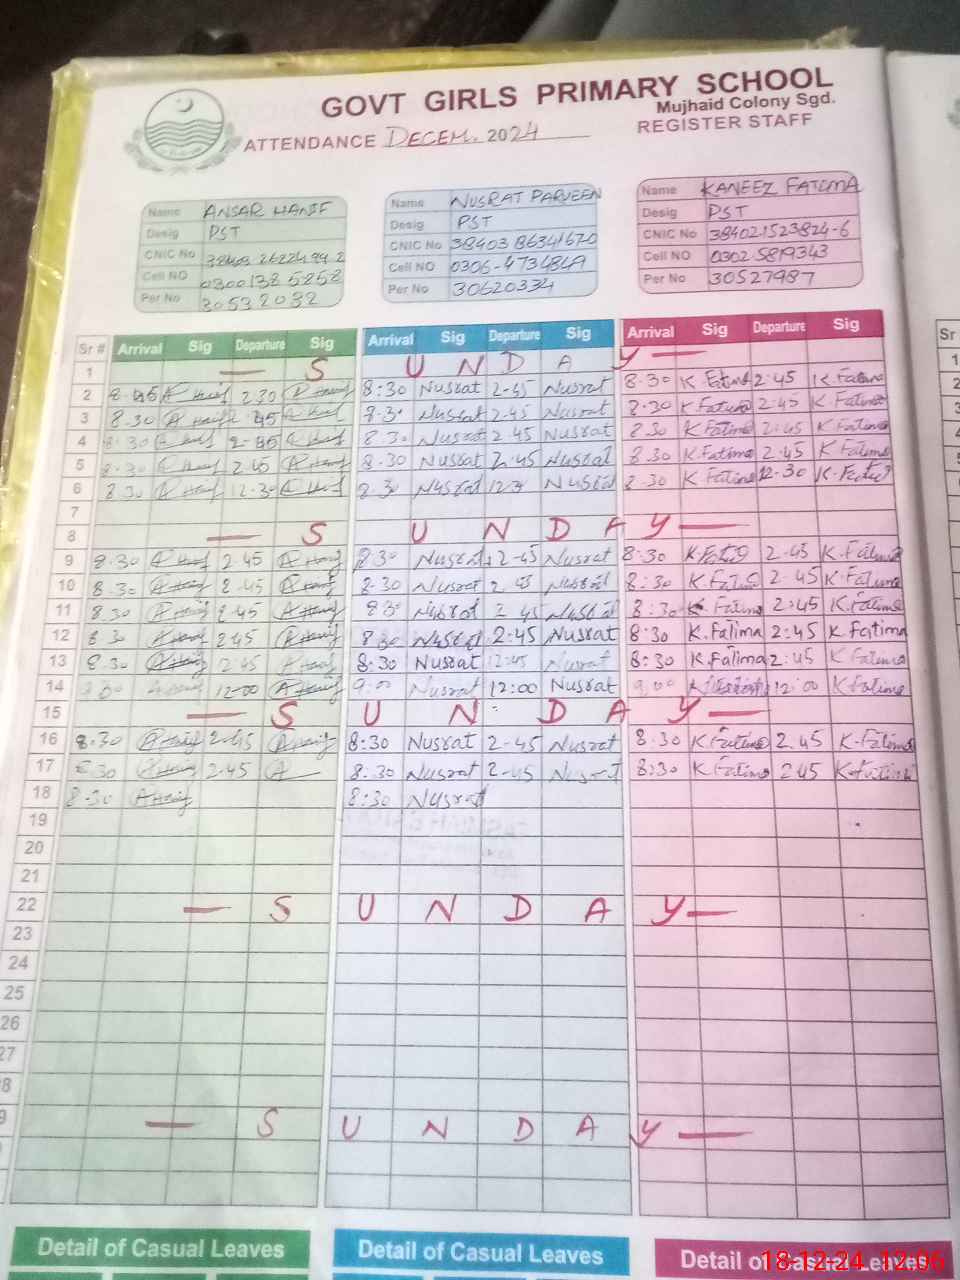 GOVT GIRLS PRIMARY SCHOOL
Mujhaid Colony Sgd.
ATTENDANCE DECEM. 2024 REGISTER STAFF
Name ANSAR HANIF Name NUSRAT PARVEEN Name KANEEZ FATIMA
Desig PST Desig PST Desig PST
CNIC No CNIC No 38403 86341670 CNIC No 384021523824-6
Cell NO 0300138 5858 Cell NO 0306-4734849 Cell NO 0302 5819343
Per No 30532032 Per No 30620334 Per No 30527987
Sr # Arrival Sig Departure Sig Arrival Sig Departure Sig Arrival Sig Departure Sig Sr
1 — S U N D A Y — 1
2 A Hanif 2.30 A Hanif 8:30 Nusrat 2-45 Nusrat 8:30 K.Fatima 2.45 K.Fatima 2
3 8.30 A Hanif 2.45 A Hanif 8.30 Nusrat 2-45 Nusrat 8.30 K Fatima 2.45 K.Fatima 3
4 8.30 A Hanif A Hanif 8.30 Nusrat 2.45 Nusrat 8.30 K Fatima 2:45 K Fatima 4
5 8.30 A Hanif 2.45 A Hanif 8.30 Nusrat 2.45 Nusrat 8.30 K Fatima 2.45 K.Fatima
6 8.30 A Hanif 12-30 A Hanif 8.30 Nusrat Nusrat 8.30 K.Fatima 12-30
7
8 — S U N D A Y —
9 8.30 A Hanif 2.45 A Hanif 8.30 Nusrat 2-45 Nusrat 8:30 2-45 K.Fatima
10 8.30 A Hanif 2.45 A Hanif 8.30 Nusrat 2.45 Nusrat 8:30 K.Fatima 2.45 K.Fatima
11 8.30 A Hanif 2.45 A Hanif 8.30 Nusrat 2.45 Nusrat 8:30 K Fatima 2:45 K.Fatima
12 8.30 A Hanif 2.45 A Hanif 8.30 Nusrat 2:45 Nusrat 8:30 K.Fatima 2:45 K.Fatima
13 8.30 A Hanif 2.45 A Hanif 8:30 Nusrat 12:45 Nusrat 8:30 K.Fatima 2:45 K Fatima
14 A Hanif 12-00 A Hanif 9:00 Nusrat 12:00 Nusrat 9:00 12:00 K Fatima
15 — S U N D A Y —
16 8.30 A Hanif 2.45 A Hanif 8:30 Nusrat 2-45 Nusrat 8:30 K.Fatima 2.45 K.Fatima
17 8.30 A Hanif 2.45 A 8.30 Nusrat 2-45 Nusrat 8:30 K Fatima 2.45 K.Fatima
18 8.30 A Hanif 8:30 Nusrat
19
20
21
22 — S U N D A Y —
23
24
25
26
27
8
9 — S U N D A Y —
Detail of Casual Leaves Detail of Casual Leaves Detail of Casual Leaves
18-12-24 12:06